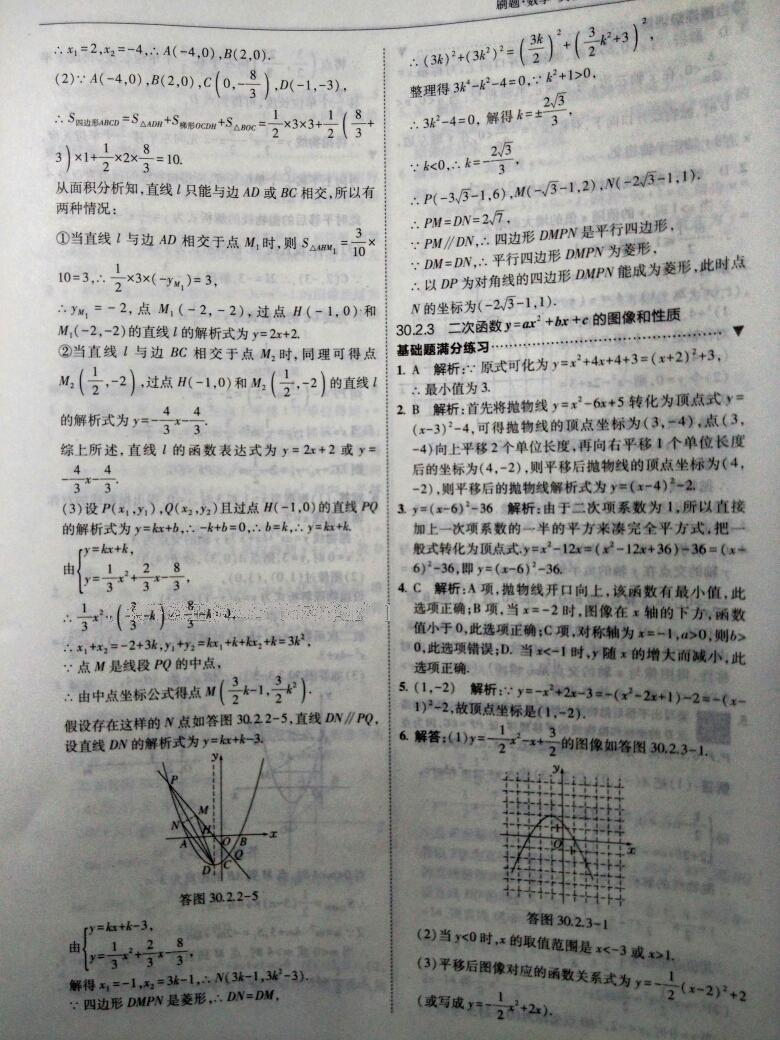 刷题·数学
∴x₁=2,x₂=-4,∴A(-4,0),B(2,0).
(2)∵A(-4,0),B(2,0),C(0,-8/3),D(-1,-3),
∴S四边形ABCD=S△ADH+S梯形OCDH+S△BOC=1/2×3×3+1/2(8/3+
3)×1+1/2×2×8/3=10.
从面积分析知,直线l只能与边AD或BC相交,所以有
两种情况:
①当直线l与边AD相交于点M₁时,则S△AHM₁=3/10×
10=3,∴1/2×3×(-yM₁)=3,
∴yM₁=-2,点M₁(-2,-2),过点H(-1,0)和
M₁(-2,-2)的直线l的解析式为y=2x+2.
②当直线l与边BC相交于点M₂时,同理可得点
M₂(1/2,-2),过点H(-1,0)和M₂(1/2,-2)的直线l
的解析式为y=-4/3x-4/3.
综上所述,直线l的函数表达式为y=2x+2或y=
-4/3x-4/3.
(3)设P(x₁,y₁),Q(x₂,y₂)且过点H(-1,0)的直线PQ
的解析式为y=kx+b,∴-k+b=0,∴b=k,∴y=kx+k.
由{y=kx+k,
y=1/3x²+2/3x-8/3,
∴1/3x²+(2/3-k)x-8/3-k=0,
∴x₁+x₂=-2+3k,y₁+y₂=kx₁+k+kx₂+k=3k²,
∵点M是线段PQ的中点,
∴由中点坐标公式得点M(3/2k-1,3/2k²).
假设存在这样的N点如答图30.2.2-5,直线DN∥PQ,
设直线DN的解析式为y=kx+k-3.
y
P
M
N
H
A
O
B
x
Q
D
C
答图30.2.2-5
由{y=kx+k-3,
y=1/3x²+2/3x-8/3,
解得x₁=-1,x₂=3k-1,∴N(3k-1,3k²-3).
∵四边形DMPN是菱形,∴DN=DM,
∴(3k)²+(3k²)²=(3k/2)²+(3/2k²+3)²,
整理得3k⁴-k²-4=0,∵k²+1>0,
∴3k²-4=0,解得k=±2√3/3,
∵k<0,∴k=-2√3/3,
∴P(-3√3-1,6),M(-√3-1,2),N(-2√3-1,1).
∴PM=DN=2√7,
∵PM∥DN,∴四边形DMPN是平行四边形,
∵DM=DN,∴平行四边形DMPN为菱形,
∴以DP为对角线的四边形DMPN能成为菱形,此时点
N的坐标为(-2√3-1,1).
30.2.3 二次函数y=ax²+bx+c的图像和性质
基础题满分练习
1. A 解析:∵原式可化为y=x²+4x+4+3=(x+2)²+3,
∴最小值为3.
2. B 解析:首先将抛物线y=x²-6x+5转化为顶点式y=
(x-3)²-4,可得抛物线的顶点坐标为(3,-4),点(3,
-4)向上平移2个单位长度,再向右平移1个单位长度
后的坐标为(4,-2),则平移后抛物线的顶点坐标为(4,
-2),则平移后的抛物线解析式为y=(x-4)²-2.
3. y=(x-6)²-36 解析:由于二次项系数为1,所以直接
加上一次项系数的一半的平方来凑完全平方式,把一
般式转化为顶点式.y=x²-12x=(x²-12x+36)-36=(x-
6)²-36,即y=(x-6)²-36.
4. C 解析:A项,抛物线开口向上,该函数有最小值,此
选项正确;B项,当x=-2时,图像在x轴的下方,函数
值小于0,此选项正确;C项,对称轴为x=-1,a>0,则b>
0,此选项错误;D.当x<-1时,y随x的增大而减小,此
选项正确.
5. (1,-2) 解析:∵y=-x²+2x-3=-(x²-2x+1)-2=-(x-
1)²-2,故顶点坐标是(1,-2).
6. 解答:(1)y=-1/2x²-x+3/2的图像如答图30.2.3-1.
y
1
O
1
x
答图30.2.3-1
(2)当y<0时,x的取值范围是x<-3或x>1.
(3)平移后图像对应的函数关系式为y=-1/2(x-2)²+2
(或写成y=-1/2x²+2x).